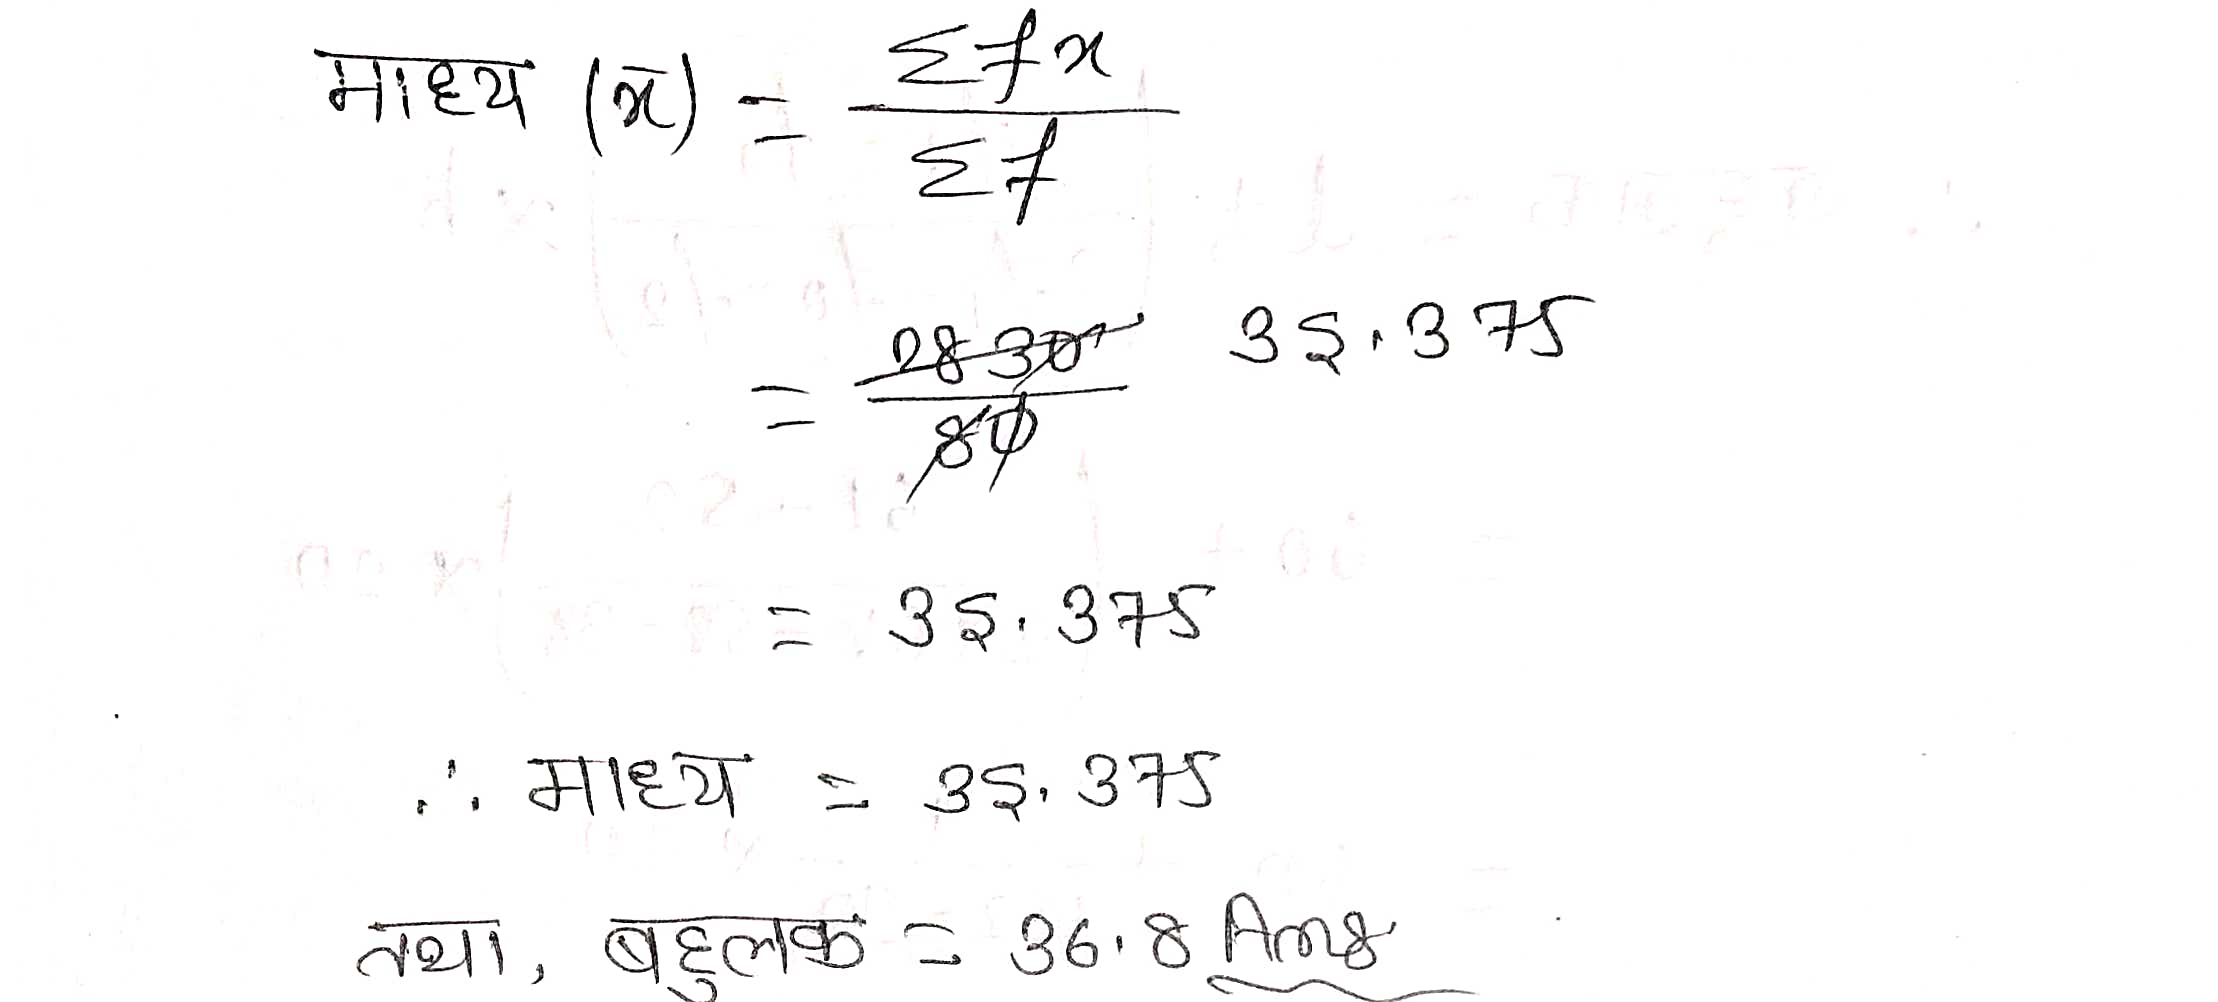 माध्य (x̄) = Σfx / Σf
= 2830 / 80 35.375
= 35.375
∴ माध्य = 35.375
तथा, बहुलक = 36.8 Ans